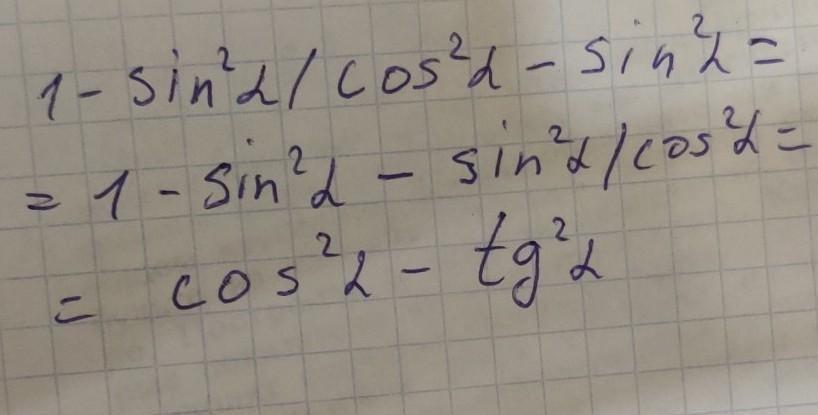 1 - sin²α / cos²α - sin²α =
= 1 - sin²α - sin²α / cos²α =
= cos²α - tg²α